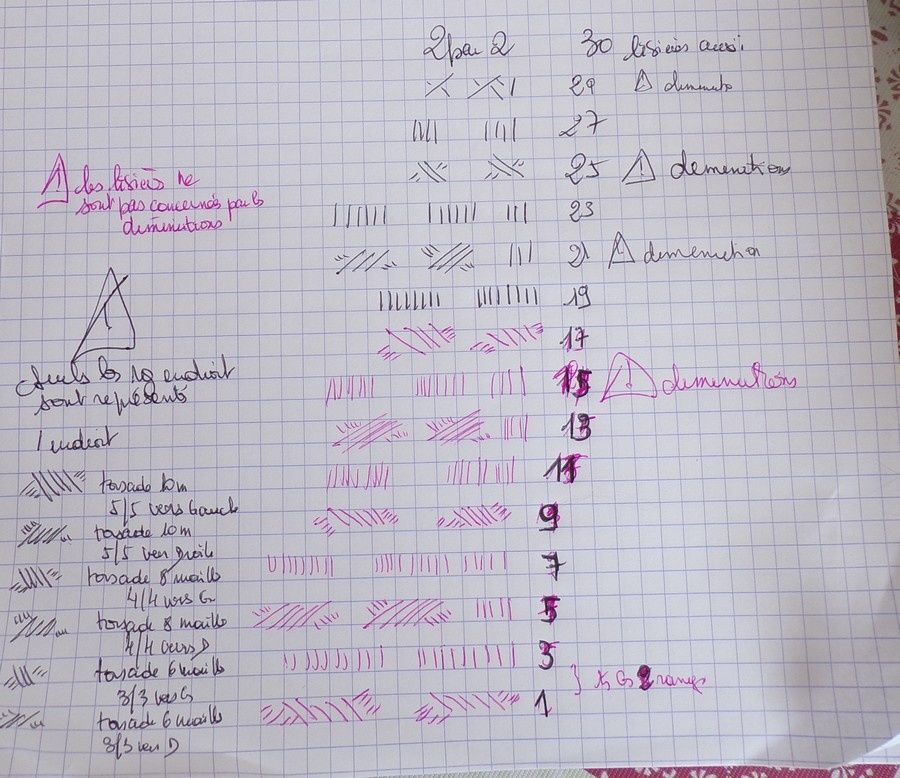 2 par 2 30 lisières aussi
29
27
25 diminutions
23
21 diminution
19
17
15 diminutions
13
11
9
7
5
3
1
les lisières ne
sont pas concernés par les
diminutions
Seuls les rg endroit
sont représents
1 endroit
torsade 10m
5/5 vers Gauche
torsade 10m
5/5 vers Droite
torsade 8 mailles
4/4 vers G
torsade 8 mailles
4/4 vers D
torsade 6 mailles
3/3 vers G
torsade 6 mailles
3/3 vers D
ts les 2 rangs